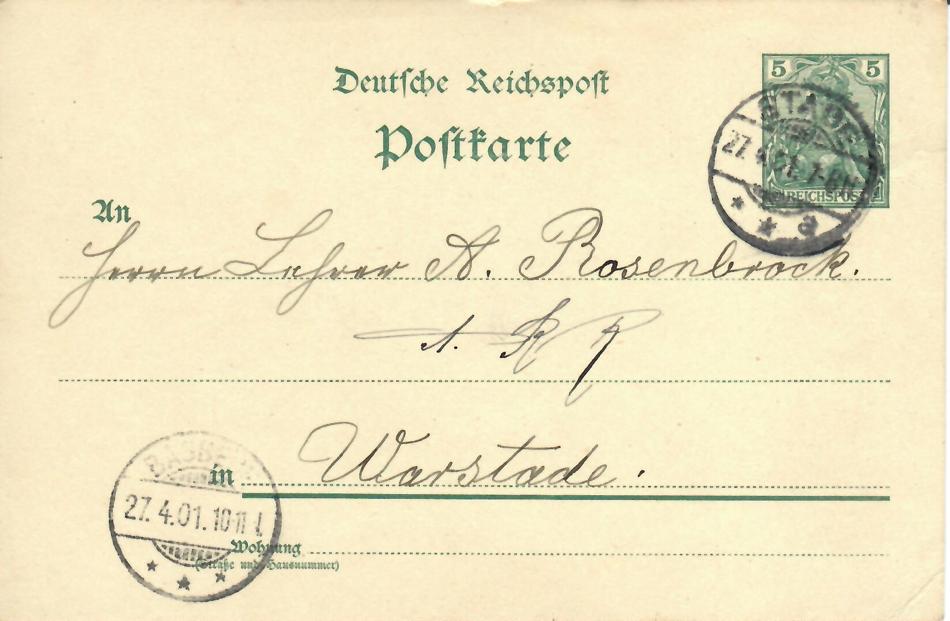 5 5
Deutsche Reichspost
Postkarte
STADE
27.4.01. 7-8
* * a
REICHSPOST
An
Herrn Lehrer A. Rosenbrock.
in Warstade.
BASBECK
27.4.01. 10-11
Wohnung
(Straße und Hausnummer)